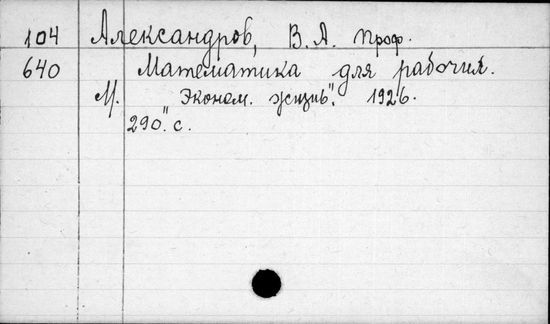 104 Александров, В.А. проф.
640 Математика для рабочих.
М. "Эконом. жизнь". 1926.
290. с.